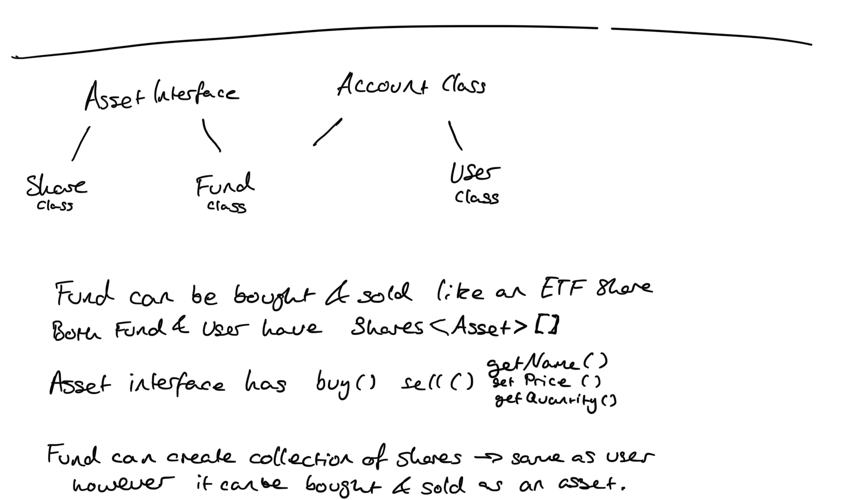 Asset Interface
Account Class
Share
class
Fund
class
User
class
Fund can be bought & sold like an ETF share
Both Fund & User have Shares<Asset>[]
Asset interface has buy() sell() getName()
getPrice()
getQuantity()
Fund can create collection of shares → same as user
however it can be bought & sold as an asset.